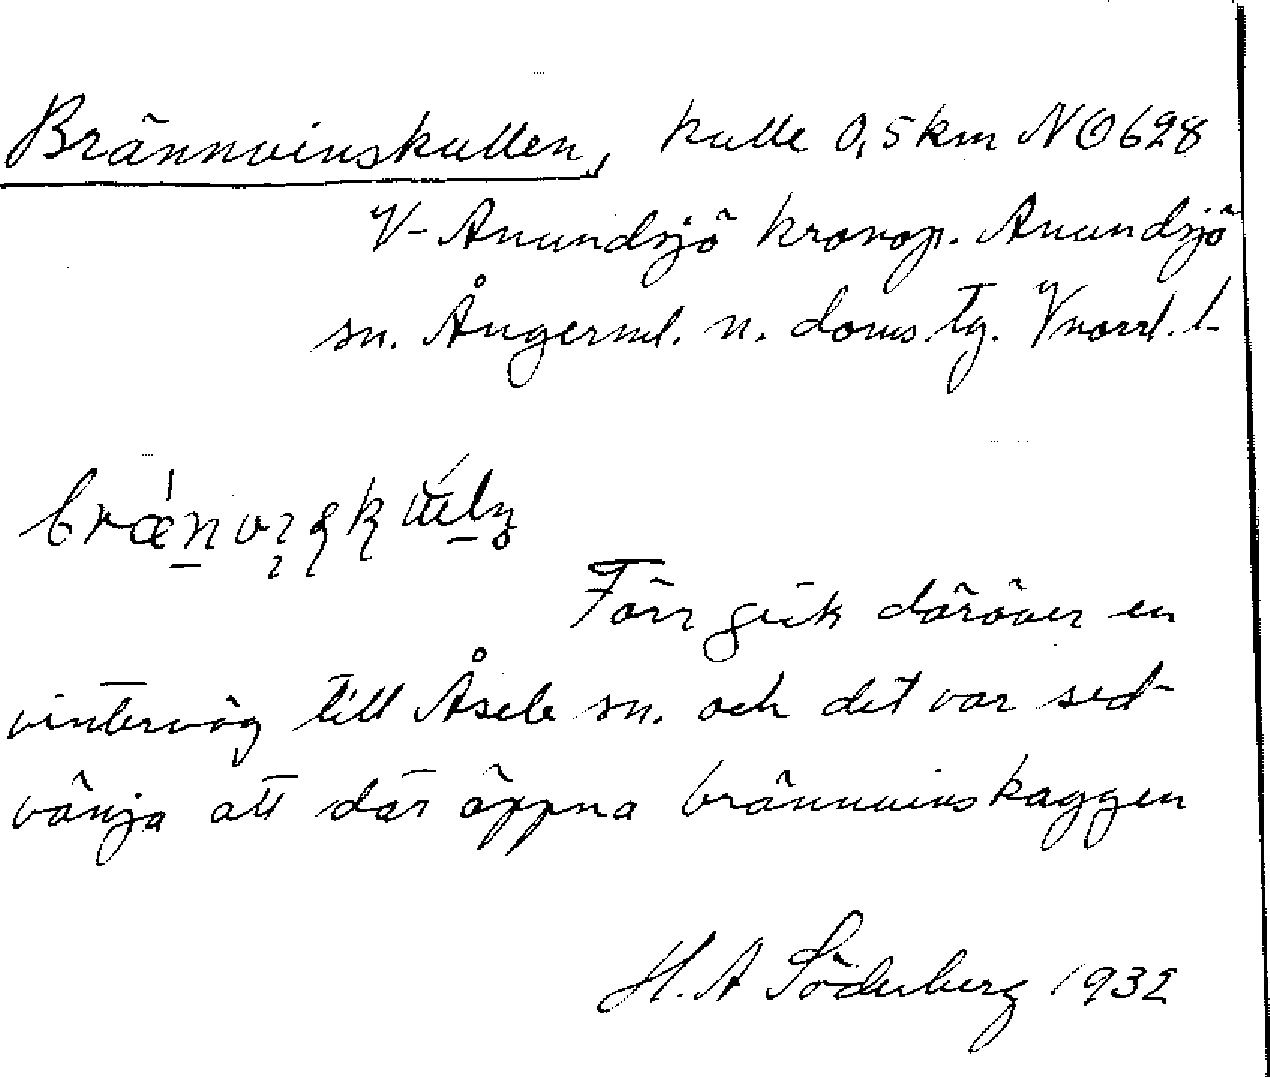 Brännvinskullen, kulle 0,5 km NO 628
V. Anundsjö kronop. Anundsjö
sn. Ångerml. n. doms. tg. Vnorrl. l.
Förr gick däröver en
vinterväg till Åsele sn. och det var sed-
vänja att där öppna brännvinskaggen
H. A Söderberg 1932